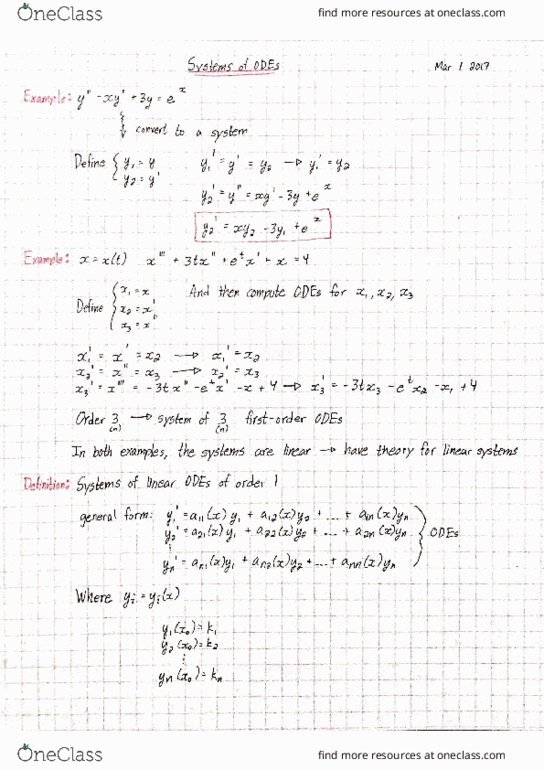 OneClass find more resources at oneclass.com
Systems of ODEs Mar 1 2017
Example: y'' - xy' + 3y = e^x
convert to a system
Define { y₁ = y y₁' = y' = y₂ → y₁' = y₂
y₂ = y'
y₂' = y'' = xy' - 3y + e^x
y₂' = xy₂ - 3y₁ + e^x
Example: x = x(t) x''' + 3tx'' + e^t x' + x = 4
Define { x₁ = x And then compute ODEs for x₁, x₂, x₃
x₂ = x'
x₃ = x''
x₁' = x' = x₂ → x₁' = x₂
x₂' = x'' = x₃ → x₂' = x₃
x₃' = x''' = -3tx'' - e^t x' - x + 4 → x₃' = -3tx₃ - e^t x₂ - x₁ + 4
Order 3 → system of 3 first-order ODEs
(n) (n)
In both examples, the systems are linear → have theory for linear systems
Definition: Systems of linear ODEs of order 1
general form: y₁' = a₁₁(x)y₁ + a₁₂(x)y₂ + ... + a₁n(x)yn
y₂' = a₂₁(x)y₁ + a₂₂(x)y₂ + ... + a₂n(x)yn } ODEs
⋮
yn' = an₁(x)y₁ + an₂(x)y₂ + ... + ann(x)yn
Where yᵢ = yᵢ(x)
y₁(x₀) = k₁
y₂(x₀) = k₂
⋮
yn(x₀) = kn
OneClass find more resources at oneclass.com